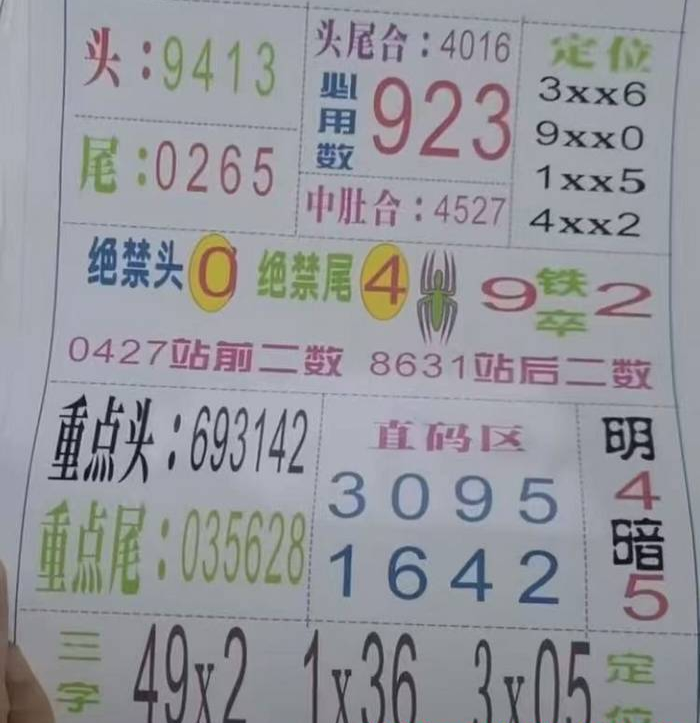 头:9413
尾:0265
头尾合:4016
必用数
923
中肚合:4527
定位
3xx6
9xx0
1xx5
4xx2
绝禁头0 绝禁尾4
9铁卒2
0427站前二数 8631站后二数
重点头:693142
重点尾:035628
直码区
3095
1642
明
4
暗
5
三字
49x2 1x36 3x05
定位